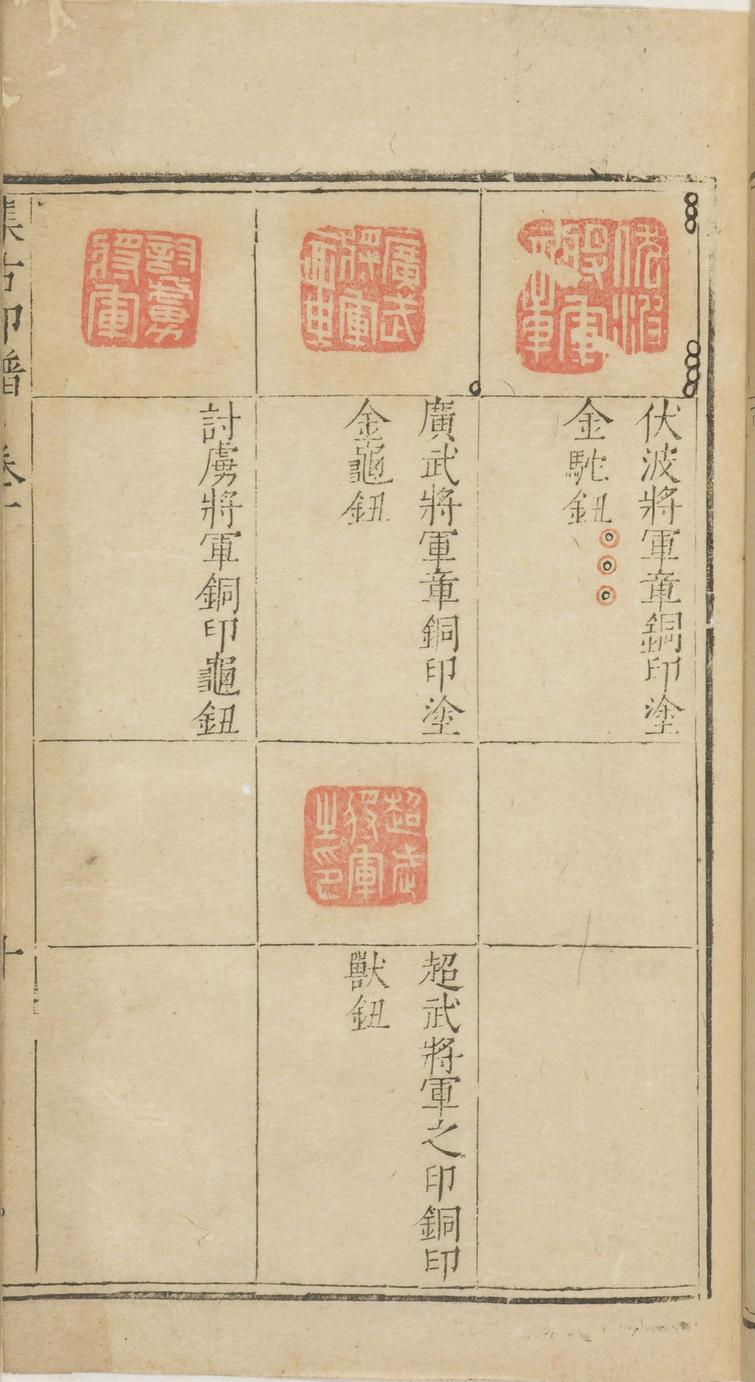 伏波將軍章
伏波將軍章銅印塗
金駝鈕
廣武將軍章
廣武將軍章銅印塗
金龜鈕
超武將軍之印
超武將軍之印銅印
獸鈕
討虜將軍
討虜將軍銅印龜鈕
集古印譜 卷一
十